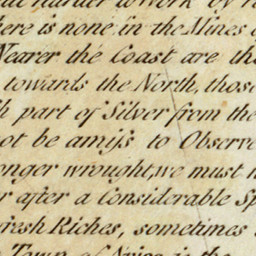 here is none in the Mines
Nearer the Coast are the
towards the North, those
part of Silver from the
not be amiſs to Observe
onger wrought, we must
after a Considerable Sp
fresh Riches, sometimes
Town of
is the